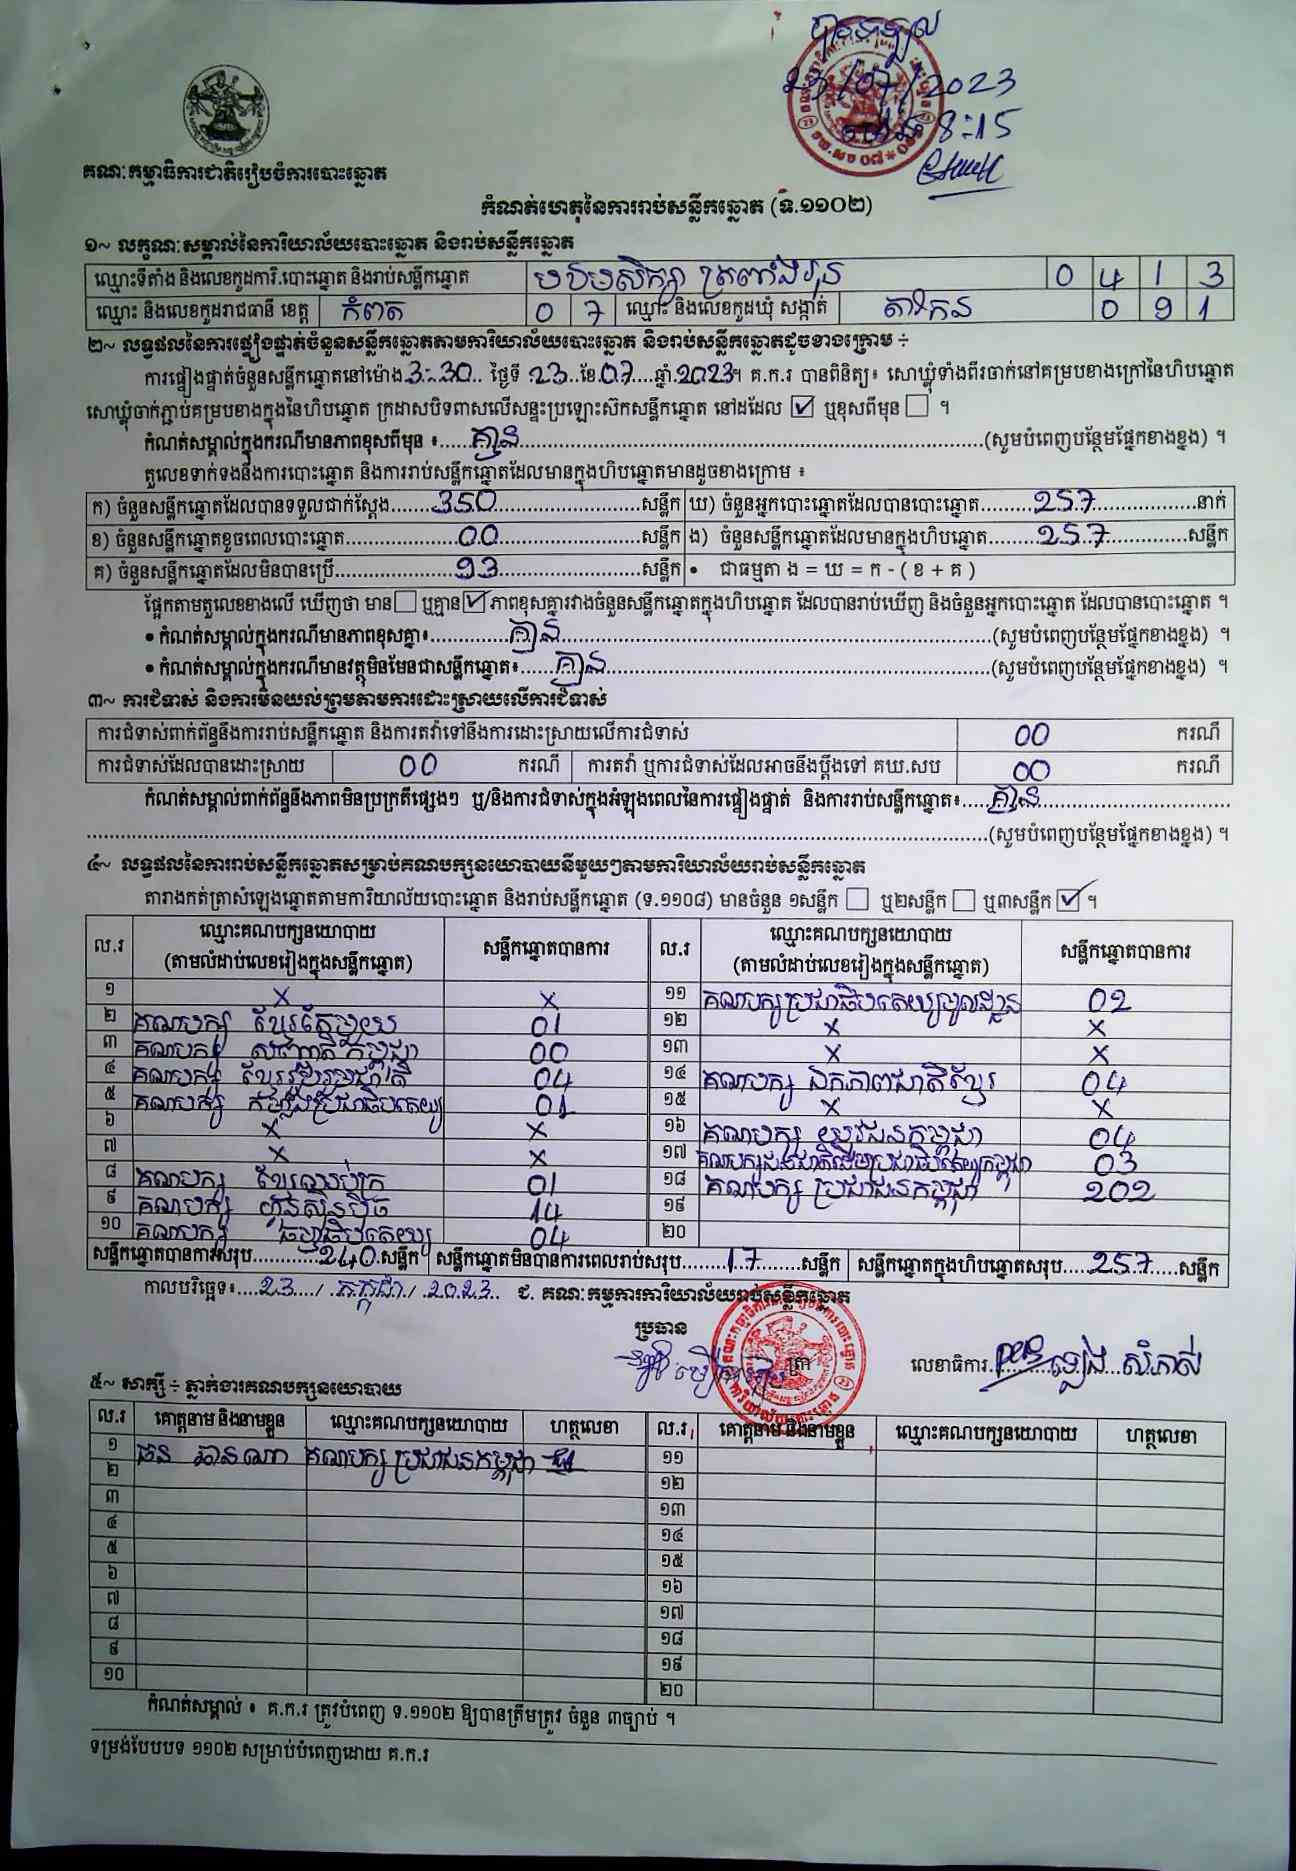 បានទទួល
23/07/2023
ម៉ោង 8:15
គណៈកម្មាធិការជាតិរៀបចំការបោះឆ្នោត
កំណត់ហេតុនៃការរាប់សន្លឹកឆ្នោត (ទ.១១០២)
១~ លក្ខណៈសម្គាល់នៃការិយាល័យបោះឆ្នោត និងរាប់សន្លឹកឆ្នោត
ឈ្មោះទីតាំង និងលេខកូដការិ.បោះឆ្នោត និងរាប់សន្លឹកឆ្នោត បឋមសិក្សា ត្រពាំងរុន 0 4 1 3
ឈ្មោះ និងលេខកូដរាជធានី ខេត្ត កំពត 0 7 ឈ្មោះ និងលេខកូដឃុំ សង្កាត់ តាកែន 0 9 1
២~ លទ្ធផលនៃការផ្ទៀងផ្ទាត់ចំនួនសន្លឹកឆ្នោតតាមការិយាល័យបោះឆ្នោត និងរាប់សន្លឹកឆ្នោតដូចខាងក្រោម ÷
ការផ្ទៀងផ្ទាត់ចំនួនសន្លឹកឆ្នោតនៅម៉ោង 3:30 ថ្ងៃទី 23 ខែ 07 ឆ្នាំ 2023។ គ.ក.រ បានពិនិត្យ៖ សោឃ្លុំទាំងពីរចាក់នៅគម្របខាងក្រៅនៃហិបឆ្នោត
សោឃ្លុំចាក់ភ្ជាប់គម្របខាងក្នុងនៃហិបឆ្នោត ក្រដាសបិទពាសលើសន្ទះប្រឡោះស៊កសន្លឹកឆ្នោត នៅដដែល ☑ ឬខុសពីមុន ☐ ។
កំណត់សម្គាល់ក្នុងករណីមានភាពខុសពីមុន ៖ គ្មាន (សូមបំពេញបន្ថែមផ្នែកខាងខ្នង) ។
តួលេខទាក់ទងនឹងការបោះឆ្នោត និងការរាប់សន្លឹកឆ្នោតដែលមានក្នុងហិបឆ្នោតមានដូចខាងក្រោម ៖
ក) ចំនួនសន្លឹកឆ្នោតដែលបានទទួលជាក់ស្តែង 350 សន្លឹក ឃ) ចំនួនអ្នកបោះឆ្នោតដែលបានបោះឆ្នោត 257 នាក់
ខ) ចំនួនសន្លឹកឆ្នោតខូចពេលបោះឆ្នោត 00 សន្លឹក ង) ចំនួនសន្លឹកឆ្នោតដែលមានក្នុងហិបឆ្នោត 257 សន្លឹក
គ) ចំនួនសន្លឹកឆ្នោតដែលមិនបានប្រើ 93 សន្លឹក • ជាធម្មតា ង = ឃ = ក - ( ខ + គ )
ផ្អែកតាមតួលេខខាងលើ ឃើញថា មាន ☐ ឬគ្មាន ☑ ភាពខុសគ្នារវាងចំនួនសន្លឹកឆ្នោតក្នុងហិបឆ្នោត ដែលបានរាប់ឃើញ និងចំនួនអ្នកបោះឆ្នោត ដែលបានបោះឆ្នោត ។
• កំណត់សម្គាល់ក្នុងករណីមានភាពខុសគ្នា៖ គ្មាន (សូមបំពេញបន្ថែមផ្នែកខាងខ្នង) ។
• កំណត់សម្គាល់ក្នុងករណីមានវត្ថុមិនមែនជាសន្លឹកឆ្នោត៖ គ្មាន (សូមបំពេញបន្ថែមផ្នែកខាងខ្នង) ។
៣~ ការជំទាស់ និងការមិនយល់ព្រមតាមការដោះស្រាយលើការជំទាស់
ការជំទាស់ពាក់ព័ន្ធនឹងការរាប់សន្លឹកឆ្នោត និងការតវ៉ាទៅនឹងការដោះស្រាយលើការជំទាស់ 00 ករណី
ការជំទាស់ដែលបានដោះស្រាយ 00 ករណី ការតវ៉ា ឬការជំទាស់ដែលអាចនឹងប្តឹងទៅ គឃ.សប 00 ករណី
កំណត់សម្គាល់ពាក់ព័ន្ធនឹងភាពមិនប្រក្រតីផ្សេងៗ ឬ/និងការជំទាស់ក្នុងអំឡុងពេលនៃការផ្ទៀងផ្ទាត់ និងការរាប់សន្លឹកឆ្នោត៖ គ្មាន
(សូមបំពេញបន្ថែមផ្នែកខាងខ្នង) ។
៤~ លទ្ធផលនៃការរាប់សន្លឹកឆ្នោតសម្រាប់គណបក្សនយោបាយនីមួយៗតាមការិយាល័យរាប់សន្លឹកឆ្នោត
តារាងកត់ត្រាសំឡេងឆ្នោតតាមការិយាល័យបោះឆ្នោត និងរាប់សន្លឹកឆ្នោត (ទ.១១០៨) មានចំនួន ១សន្លឹក ☐ ឬ២សន្លឹក ☐ ឬ៣សន្លឹក ☑ ។
ល.រ ឈ្មោះគណបក្សនយោបាយ សន្លឹកឆ្នោតបានការ ល.រ ឈ្មោះគណបក្សនយោបាយ សន្លឹកឆ្នោតបានការ
(តាមលំដាប់លេខរៀងក្នុងសន្លឹកឆ្នោត) (តាមលំដាប់លេខរៀងក្នុងសន្លឹកឆ្នោត)
១ x x ១១ គណបក្សប្រជាធិបតេយ្យមូលដ្ឋាន 02
២ គណបក្ស ខ្មែរតែមួយ 01 ១២ x x
៣ គណបក្ស សញ្ជាតិកម្ពុជា 00 ១៣ x x
៤ គណបក្ស ខ្មែររួបរួមជាតិ 04 ១៤ គណបក្ស ឯកភាពជាតិខ្មែរ 04
៥ គណបក្ស កម្លាំងប្រជាធិបតេយ្យ 01 ១៥ x x
៦ x x ១៦ គណបក្ស យុវជនកម្ពុជា 04
៧ x x ១៧ គណបក្សជនជាតិដើមប្រជាធិបតេយ្យកម្ពុជា 03
៨ គណបក្ស ខ្មែរឈប់ក្រ 01 ១៨ គណបក្ស ប្រជាជនកម្ពុជា 202
៩ គណបក្ស ហ្វ៊ុនស៊ិនប៉ិច 14 ១៩
១០ គណបក្ស ធម្មាធិបតេយ្យ 04 ២០
សន្លឹកឆ្នោតបានការសរុប 240 សន្លឹក សន្លឹកឆ្នោតមិនបានការពេលរាប់សរុប 17 សន្លឹក សន្លឹកឆ្នោតក្នុងហិបឆ្នោតសរុប 257 សន្លឹក
កាលបរិច្ឆេទ៖ 23 / កក្កដា / 2023 ជ. គណៈកម្មការការិយាល័យរាប់សន្លឹកឆ្នោត
ប្រធាន ត្រា លេខាធិការ
៥~ សាក្សី ÷ ភ្នាក់ងារគណបក្សនយោបាយ
ល.រ គោត្តនាម និងនាមខ្លួន ឈ្មោះគណបក្សនយោបាយ ហត្ថលេខា ល.រ គោត្តនាម និងនាមខ្លួន ឈ្មោះគណបក្សនយោបាយ ហត្ថលេខា
១ ផន ឆានណា គណបក្ស ប្រជាជនកម្ពុជា ១១
២ ១២
៣ ១៣
៤ ១៤
៥ ១៥
៦ ១៦
៧ ១៧
៨ ១៨
៩ ១៩
១០ ២០
កំណត់សម្គាល់ ៖ គ.ក.រ ត្រូវបំពេញ ទ.១១០២ ឱ្យបានត្រឹមត្រូវ ចំនួន ៣ច្បាប់ ។
ទម្រង់បែបបទ ១១០២ សម្រាប់បំពេញដោយ គ.ក.រ